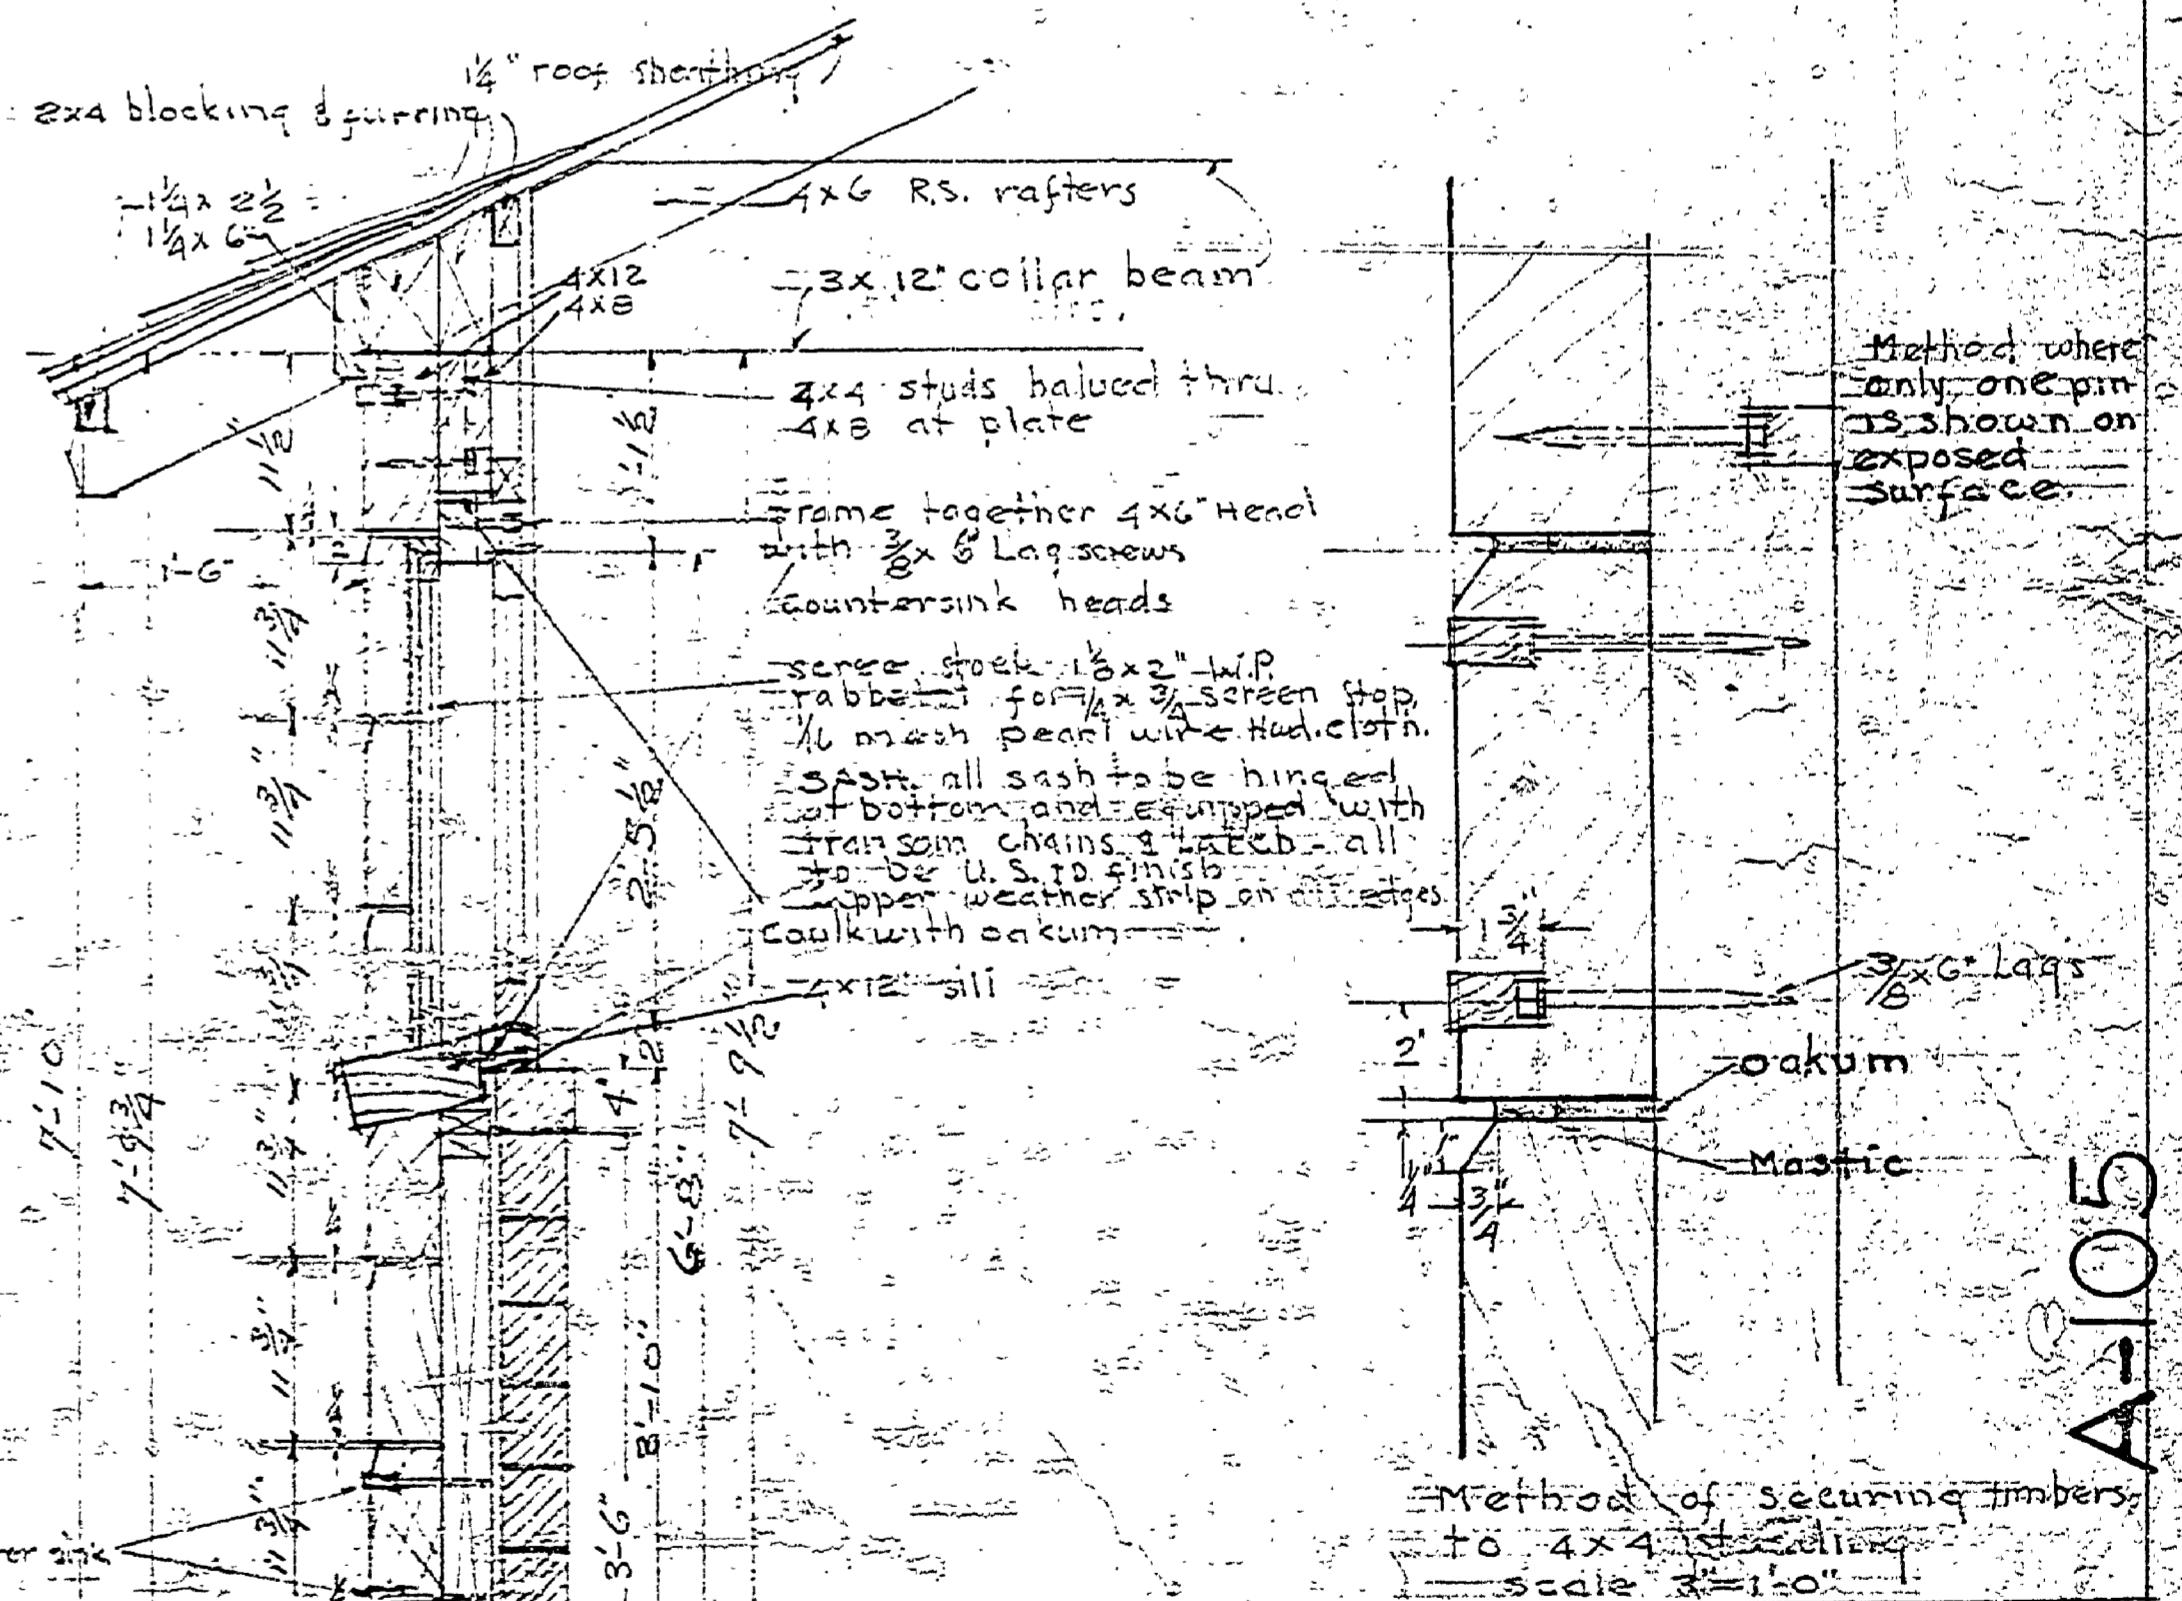 1¼" roof sheathing
2x4 blocking & furring
1¼ x 2½
1¼ x 6
4x6 R.S. rafters
4x12
4x8
3x12" collar beam
4x8 at plate
studs halued thru
11½
1'-1½
Frame together 4x6" Head
with 3/8 x 6" Lag screws
countersink heads
1'-6"
11¾
11¾"
stock 1⅛x2" W.P.
screen stop
mesh pearl wire Hud. cloth.
SASH. all sash to be hinged
at bottom and equipped with
transom chains & Latch - all
to be U.S. 10 finish
weather strip on all edges
caulk with oakum
2'-5½"
4x12" sill
7'-10
7'-9¾
11¾"
11¾"
11¾"
4"
2"
6'-8"
7'-9½
2'-10"
3'-6"
Method where
only one pin
is shown on
exposed
surface.
1¾"
3/8 x 6" Lags
2"
oakum
Mastic
1"
¼
¾"
A-105
Method of securing timbers
to 4x4
scale 3"=1'-0"